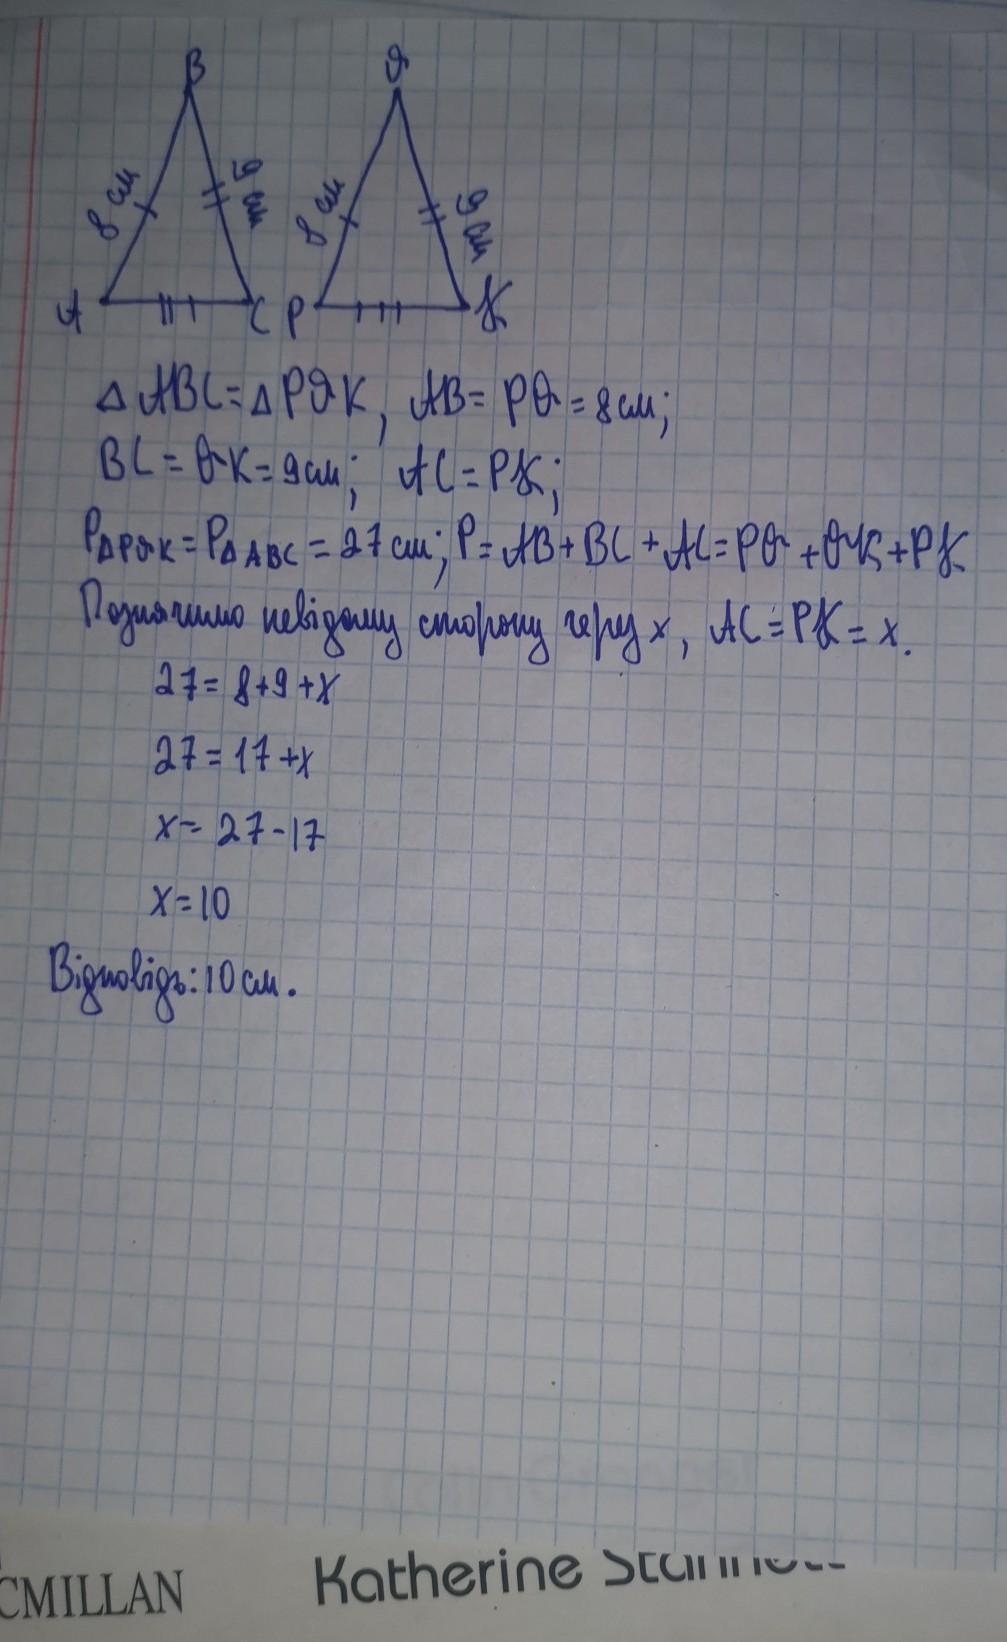 B
Q
8 см
9 см
8 см
9 см
A
C
P
K
△ABC=△PQK, AB=PQ=8см;
BC=QK=9см; AC=PK;
P△PQK=P△ABC=27см; P=AB+BC+AC=PQ+QK+PK
Позначимо невідому сторону через x, AC=PK=x.
27=8+9+x
27=17+x
x=27-17
x=10
Відповідь: 10 см.
CMILLAN
Katherine